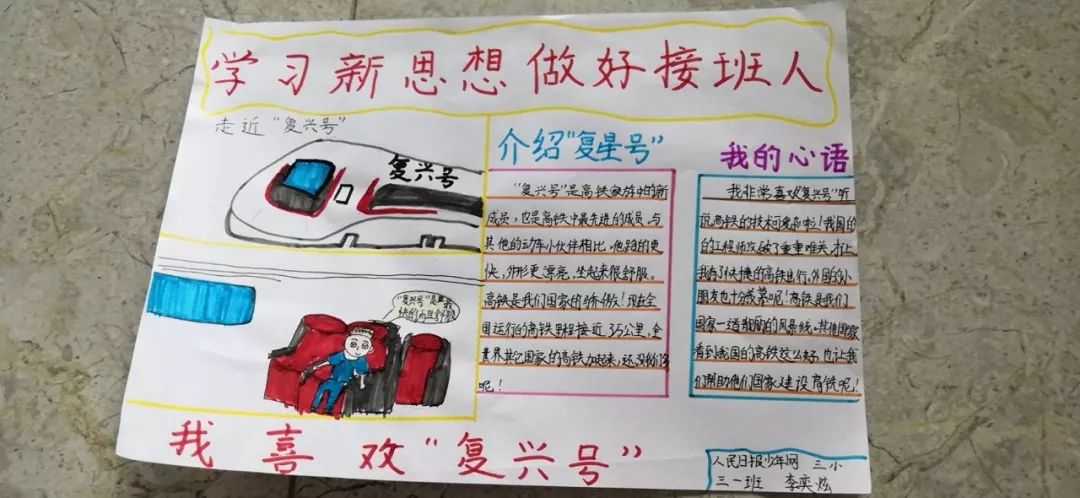 学习新思想做好接班人
走近“复兴号”
复兴号
“复兴号”是最
快的而且舒服
介绍“复星号”
“复兴号”是高铁家族中的新
成员，也是高铁中最先进的成员。与
其他的动车小伙伴相比，他跑的更
快，外形更漂亮，坐起来很舒服。
高铁是我们国家的骄傲！现在全
国运行的高铁里程接近3.5公里，全
世界其它国家的高铁加起来，还没我们多
呢！
我的心语
我非常喜欢复兴号”听
说高铁的技术可复杂啦！我国的
的工程师攻破了重重难关，才让
我有了快捷的高铁出行，外国的小
朋友也十分羡慕呢！高铁是我们
国家一道靓丽的风景线。其他国家
看到我国的高铁这么好，也让我
们帮助他们国家建设高铁呢！
我喜欢“复兴号”
人民日报少年网 三小
三一班 李奕炫